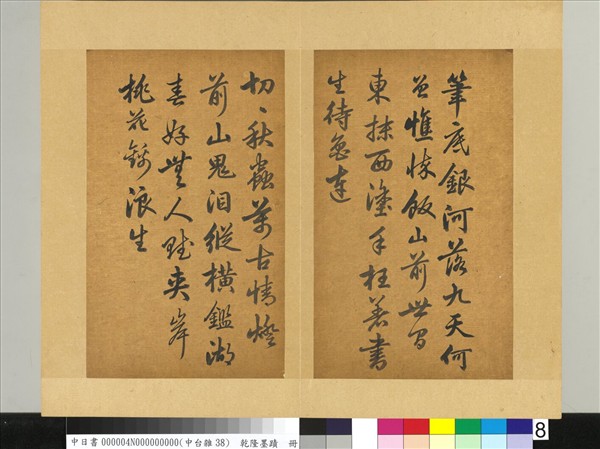 筆底銀河落九天何
曾憔悴飯山前世間
東抹西塗手枉著書
生待魯連
切〻秋蟲萬古情燈
前山鬼淚縱橫鑑湖
春好無人賦夾岸
桃花錦浪生
中日書 000004N000000000(中台雜38) 乾隆墨蹟 冊
8